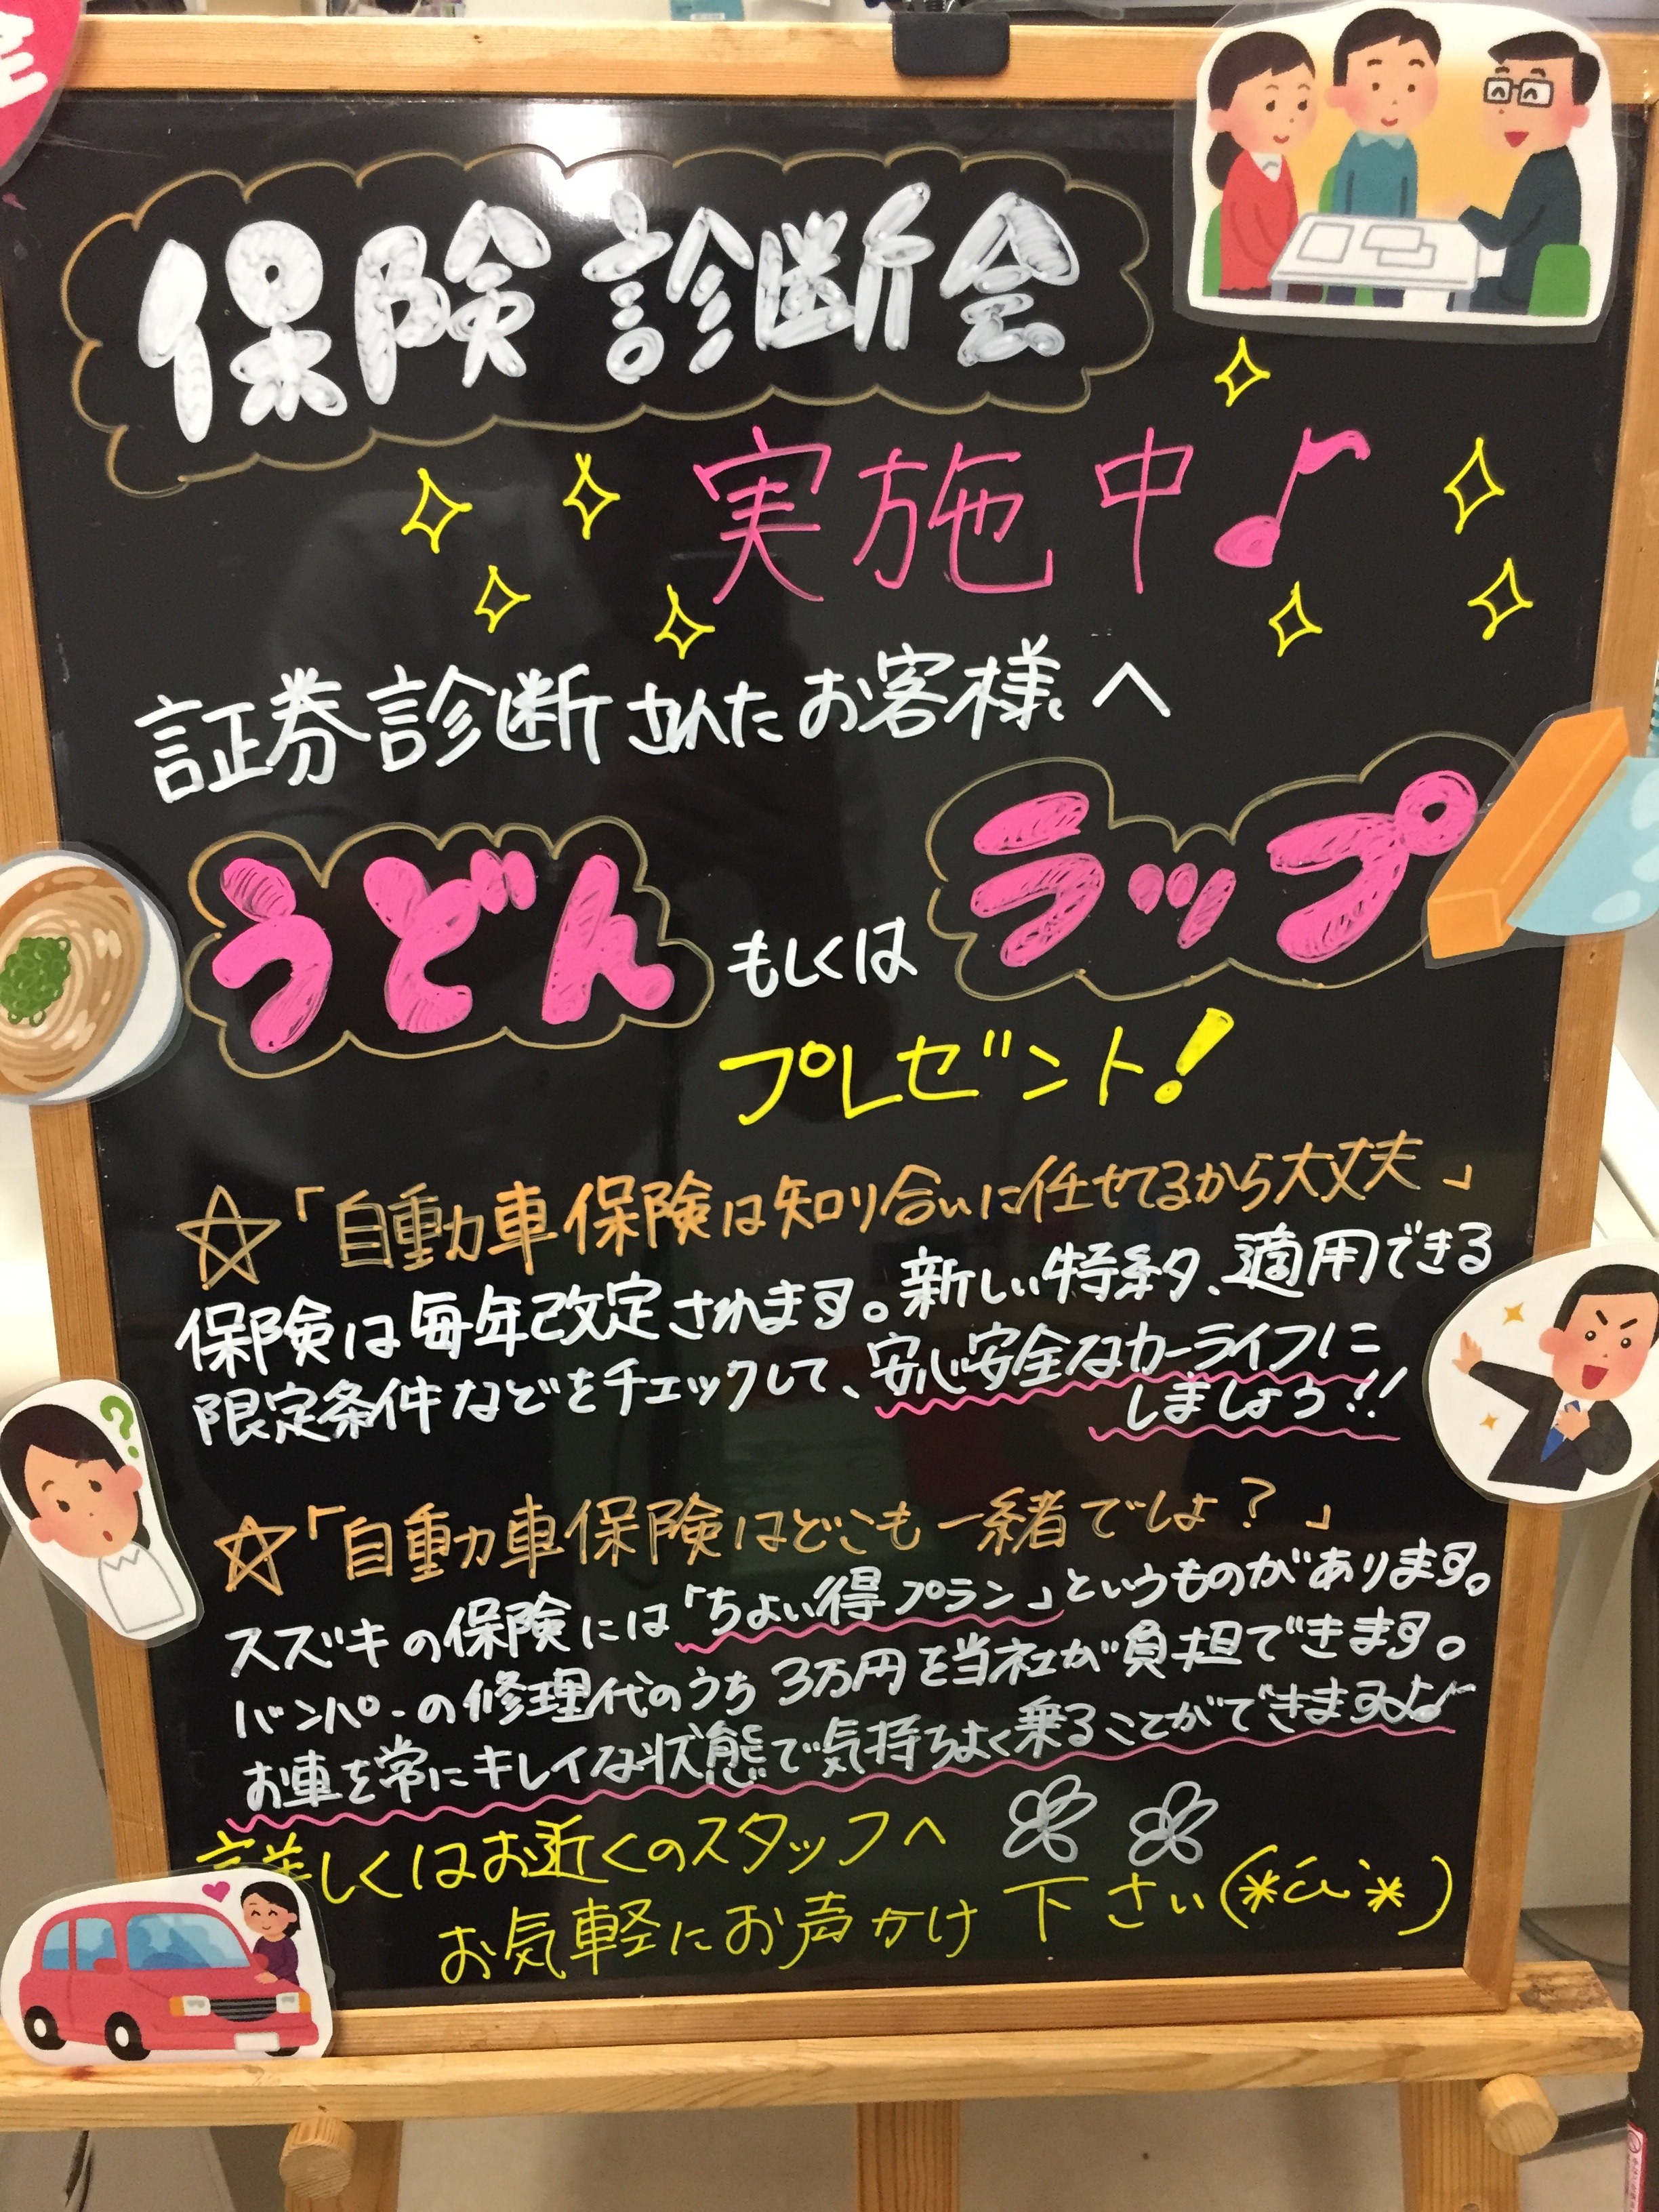 保険診断会
実施中♪
証券診断されたお客様へ
うどん もしくは ラップ
プレゼント!
☆「自動車保険は知り合いに任せてるから大丈夫」
保険は毎年改定されます。新しい特約、適用できる
限定条件などをチェックして、安心安全なカーライフに
しましょう!!
☆「自動車保険はどこも一緒でしょ?」
スズキの保険には「ちょい得プラン」というものがあります。
バンパーの修理代のうち3万円を当社が負担できます。
お車を常にキレイな状態で気持ちよく乗ることができます♪
詳しくはお近くのスタッフへ
お気軽にお声かけ下さい(*´ω`*)